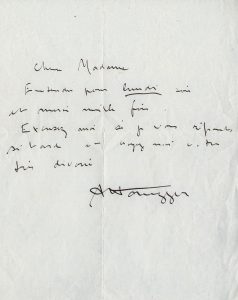 Chère Madame
Entendu pour lundi soir
et merci mille fois.
Excusez moi si je vous réponds
si tard et croyez moi votre
très dévoué
AHonegger